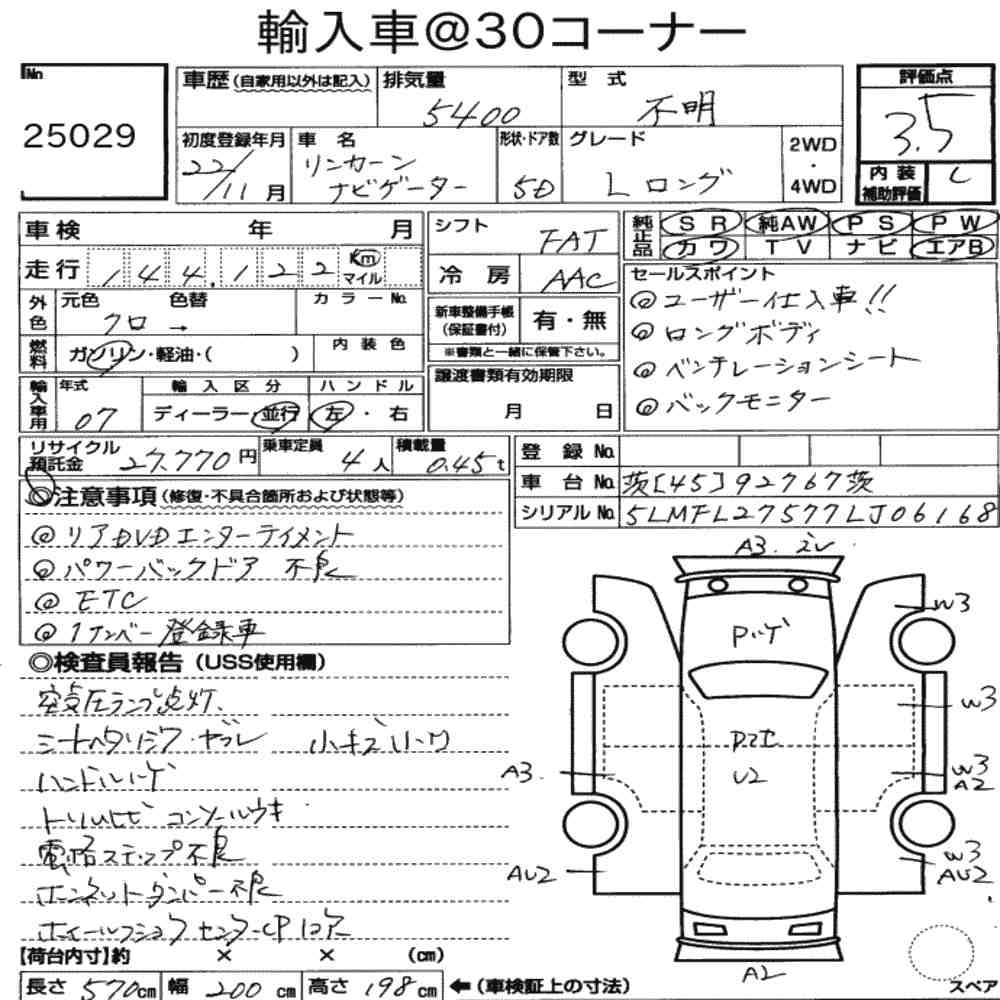 輸入車@30コーナー
No
25029
車歴(自家用以外は記入)
排気量
5400
型式
不明
評価点
3.5
初度登録年月
22/11月
車名
リンカーン
ナビゲーター
形状・ドア数
5D
グレード
Lロング
2WD
・
4WD
内装
補助評価
C
車検 年 月
走行 144,122 Km
マイル
シフト
FAT
冷房
AAC
純正品
SR 純AW PS PW
カワ TV ナビ エアB
外色
元色 色替
クロ →
カラーNo.
燃料
ガソリン・軽油・( )
内装色
新車整備手帳
(保証書付)
有・無
※書類と一緒に保管下さい。
セールスポイント
@ユーザー仕入車!!
@ロングボディ
@ベンチレーションシート
@バックモニター
輸入車用
年式
07
輸入区分
ディーラー・並行
ハンドル
左・右
譲渡書類有効期限
月 日
リサイクル
預託金
27,770円
乗車定員
4人
積載量
0.45t
登録No.
車台No. 茨[45]92767茨
シリアルNo. 5LMFL27577LJ06168
◎注意事項(修復・不具合箇所および状態等)
@リアDVDエンターテイメント
@パワーバックドア 不良
@ETC
@1ナンバー登録車
◎検査員報告(USS使用欄)
空気圧ランプ点灯.
シートヘタリシワ・ヤブレ 小キズ小凹
ハンドルハゲ
トリムヒビ コンソールウキ
電格ステップ不良
ボンネットダンパー不良
【荷台内寸】約 × × (cm)
長さ 570cm 幅 200cm 高さ 198cm
←(車検証上の寸法)
A3.
W3
ハゲ
W3
U2
A3.
W3
A2
W3
AU2
AU2
A2
スペア